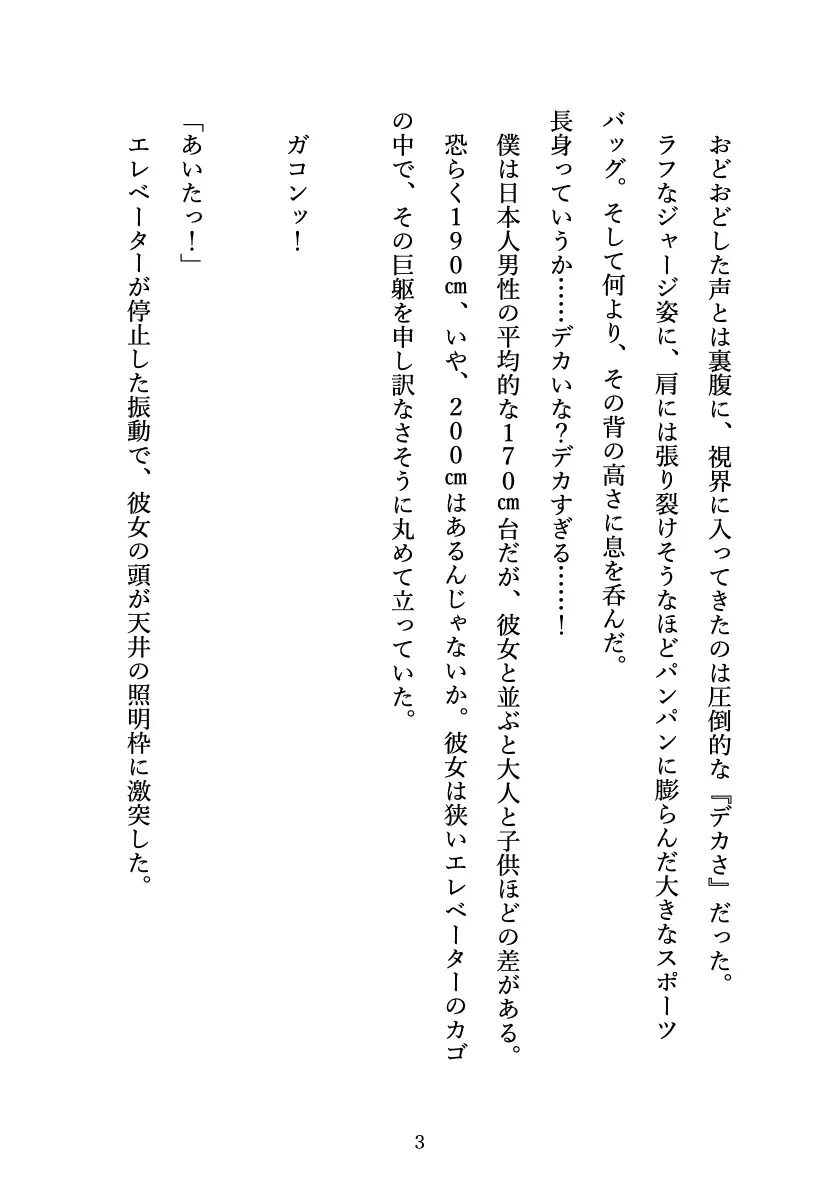 おどおどした声とは裏腹に、視界に入ってきたのは圧倒的な『デカさ』だった。
ラフなジャージ姿に、肩には張り裂けそうなほどパンパンに膨らんだ大きなスポーツ
バッグ。そして何より、その背の高さに息を呑んだ。
長身っていうか……デカいな？デカすぎる……！
僕は日本人男性の平均的な170㎝台だが、彼女と並ぶと大人と子供ほどの差がある。
恐らく190㎝、いや、200㎝はあるんじゃないか。彼女は狭いエレベーターのカゴ
の中で、その巨躯を申し訳なさそうに丸めて立っていた。
ガコンッ！
「あいたっ！」
エレベーターが停止した振動で、彼女の頭が天井の照明枠に激突した。
3